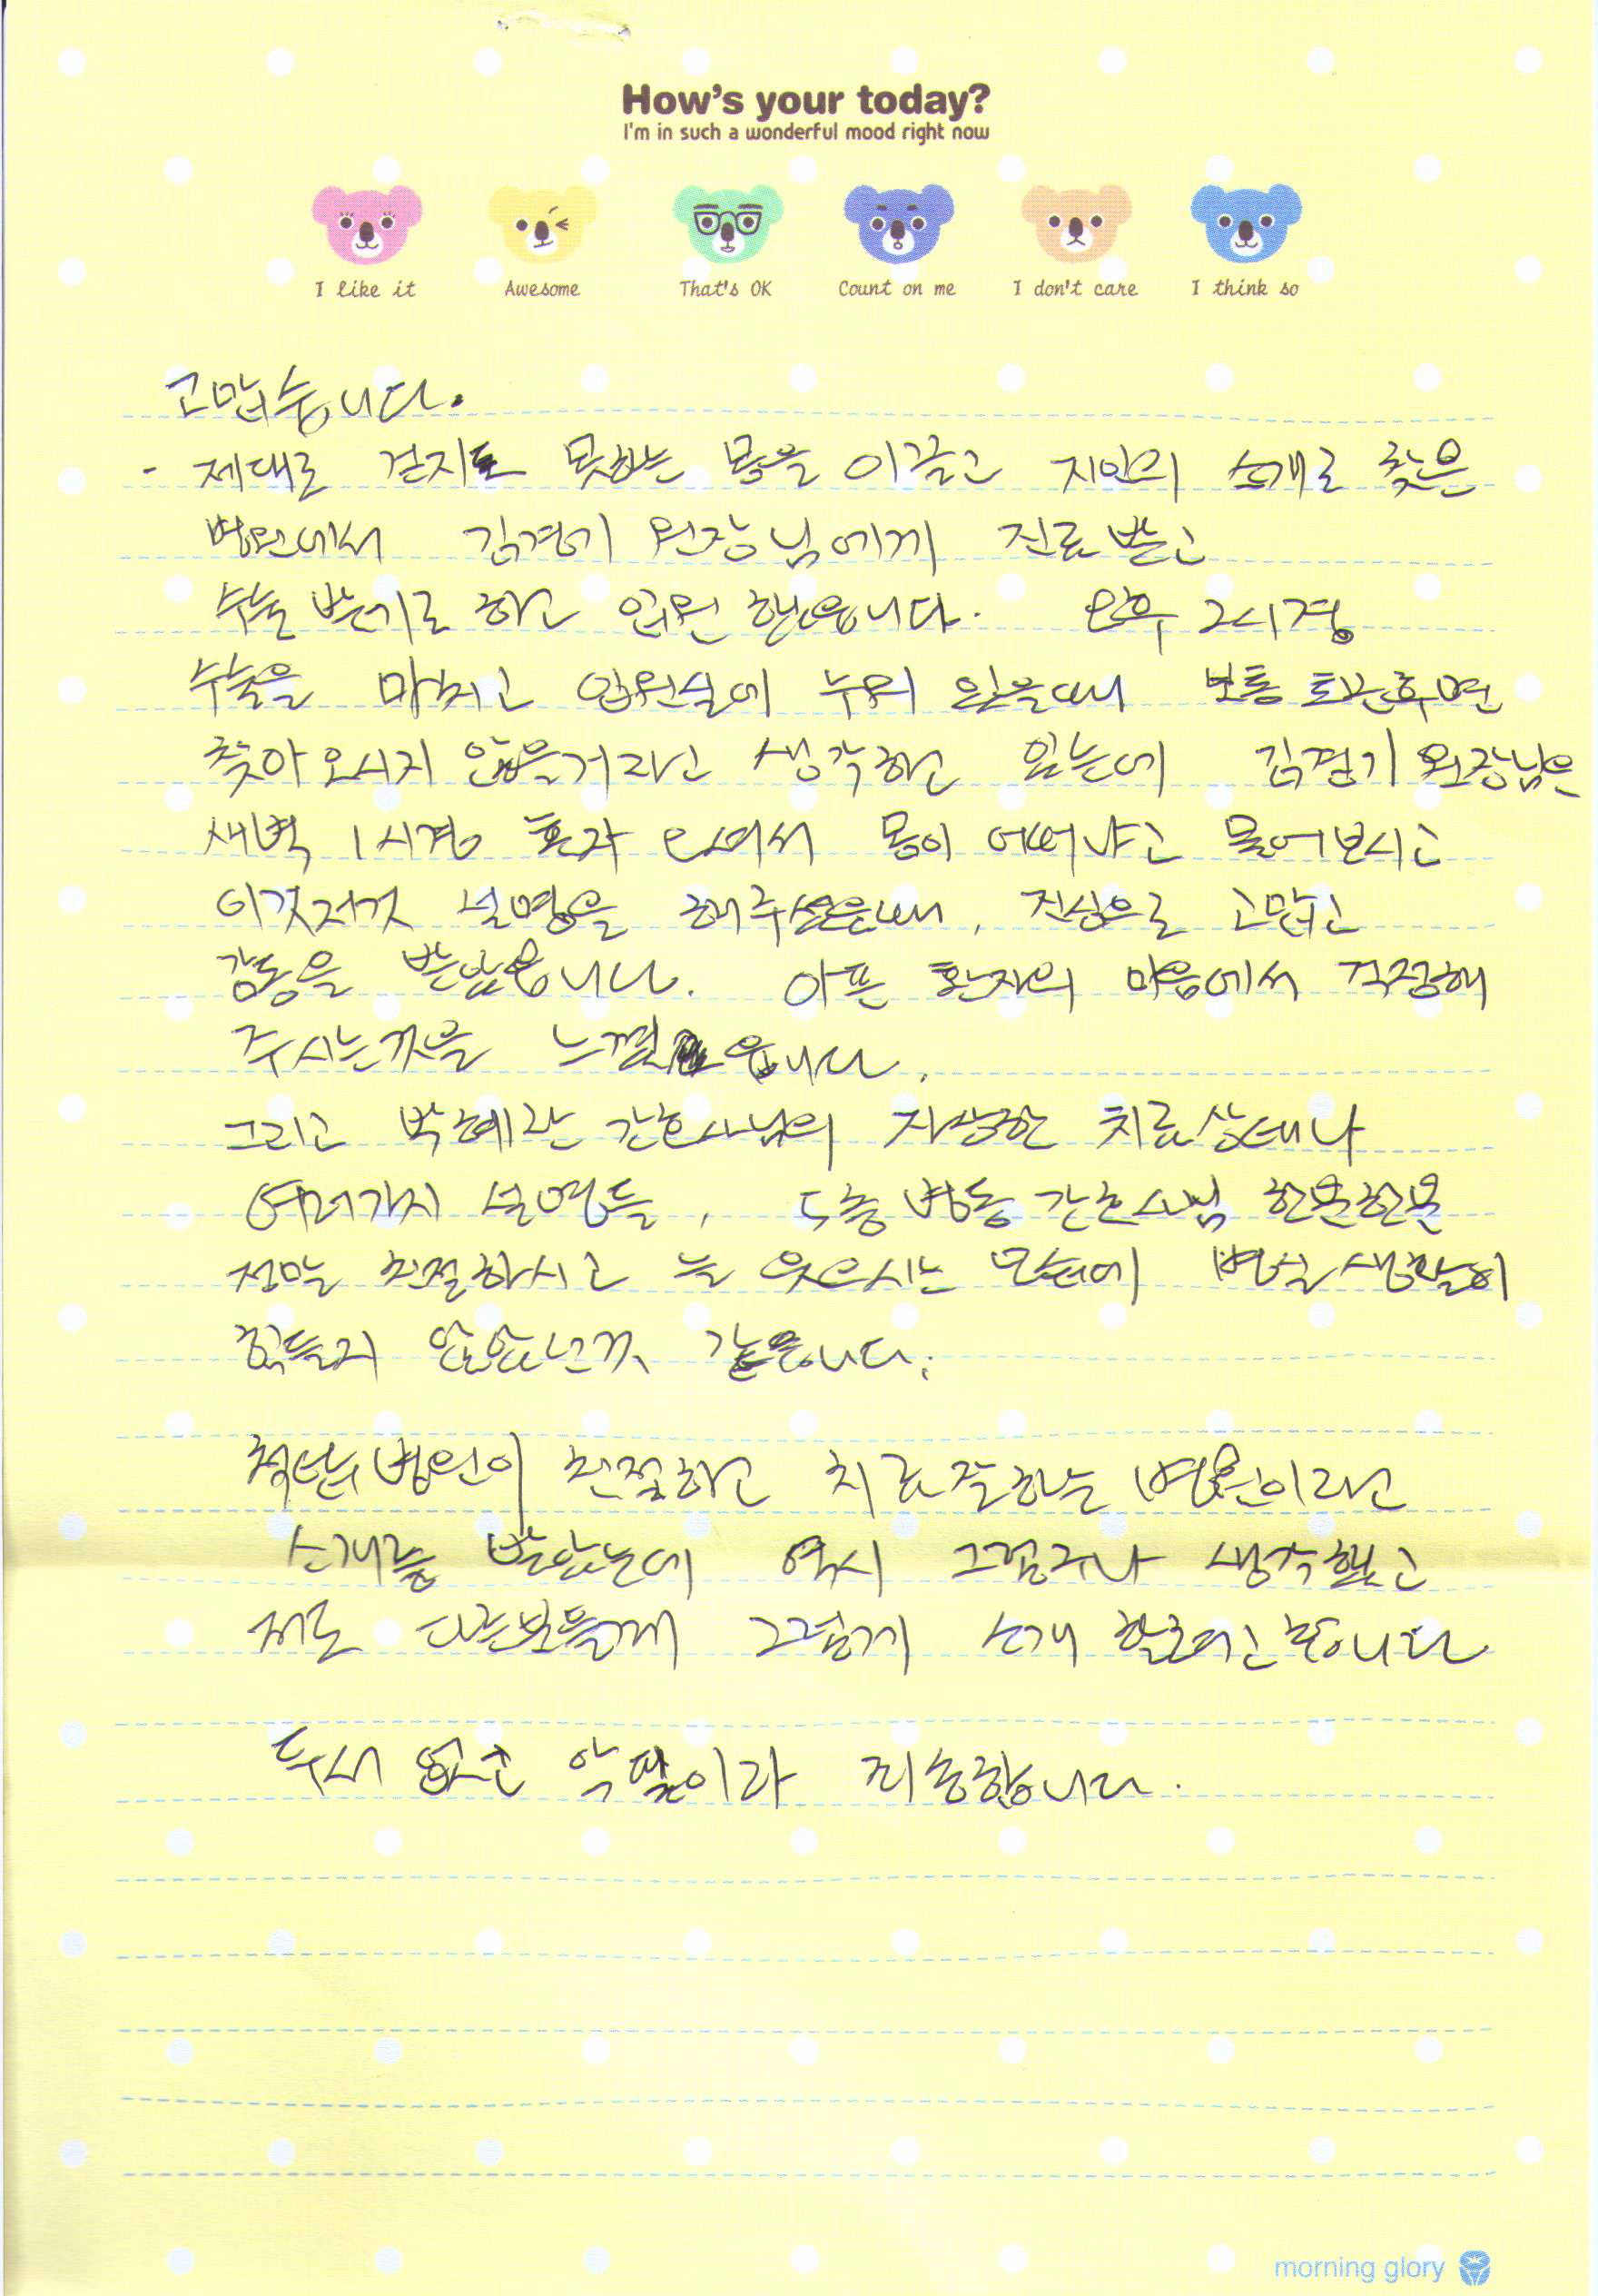 How's your today?
I'm in such a wonderful mood right now
I like it Awesome That's OK Count on me I don't care I think so
고맙습니다.
- 제대로 걷지도 못하는 몸을 이끌고 지인의 소개로 찾은
병원에서 김경기 원장님에게 진료 받고
수술 받기로 하고 입원 했읍니다. 오후 2시경
수술을 마치고 입원실에 누워 있을때 보통 퇴근후면
찾아 오시지 않을거라고 생각하고 있는데 김경기 원장님은
새벽 1시경 혼자 오셔서 몸이 어떠냐고 물어보시고
이것저것 설명을 해주셨을때, 진심으로 고맙고
감동을 받았읍니다. 아픈 환자의 마음에서 걱정해
주시는것을 느꼈읍니다.
그리고 박혜란 간호사님의 자상한 치료상태나
여러가지 설명들, 5층 병동 간호사님 한분한분
정말 친절하시고 늘 웃으시는 모습에 병실생활이
힘들지 않았던것 같읍니다.
청담병원이 친절하고 치료잘하는 병원이라고
소개를 받았는데 역시 그렇구나 생각했고
저도 다른분들께 그렇게 소개 할려고 합니다
두서 없는 악필이라 죄송합니다.
morning glory